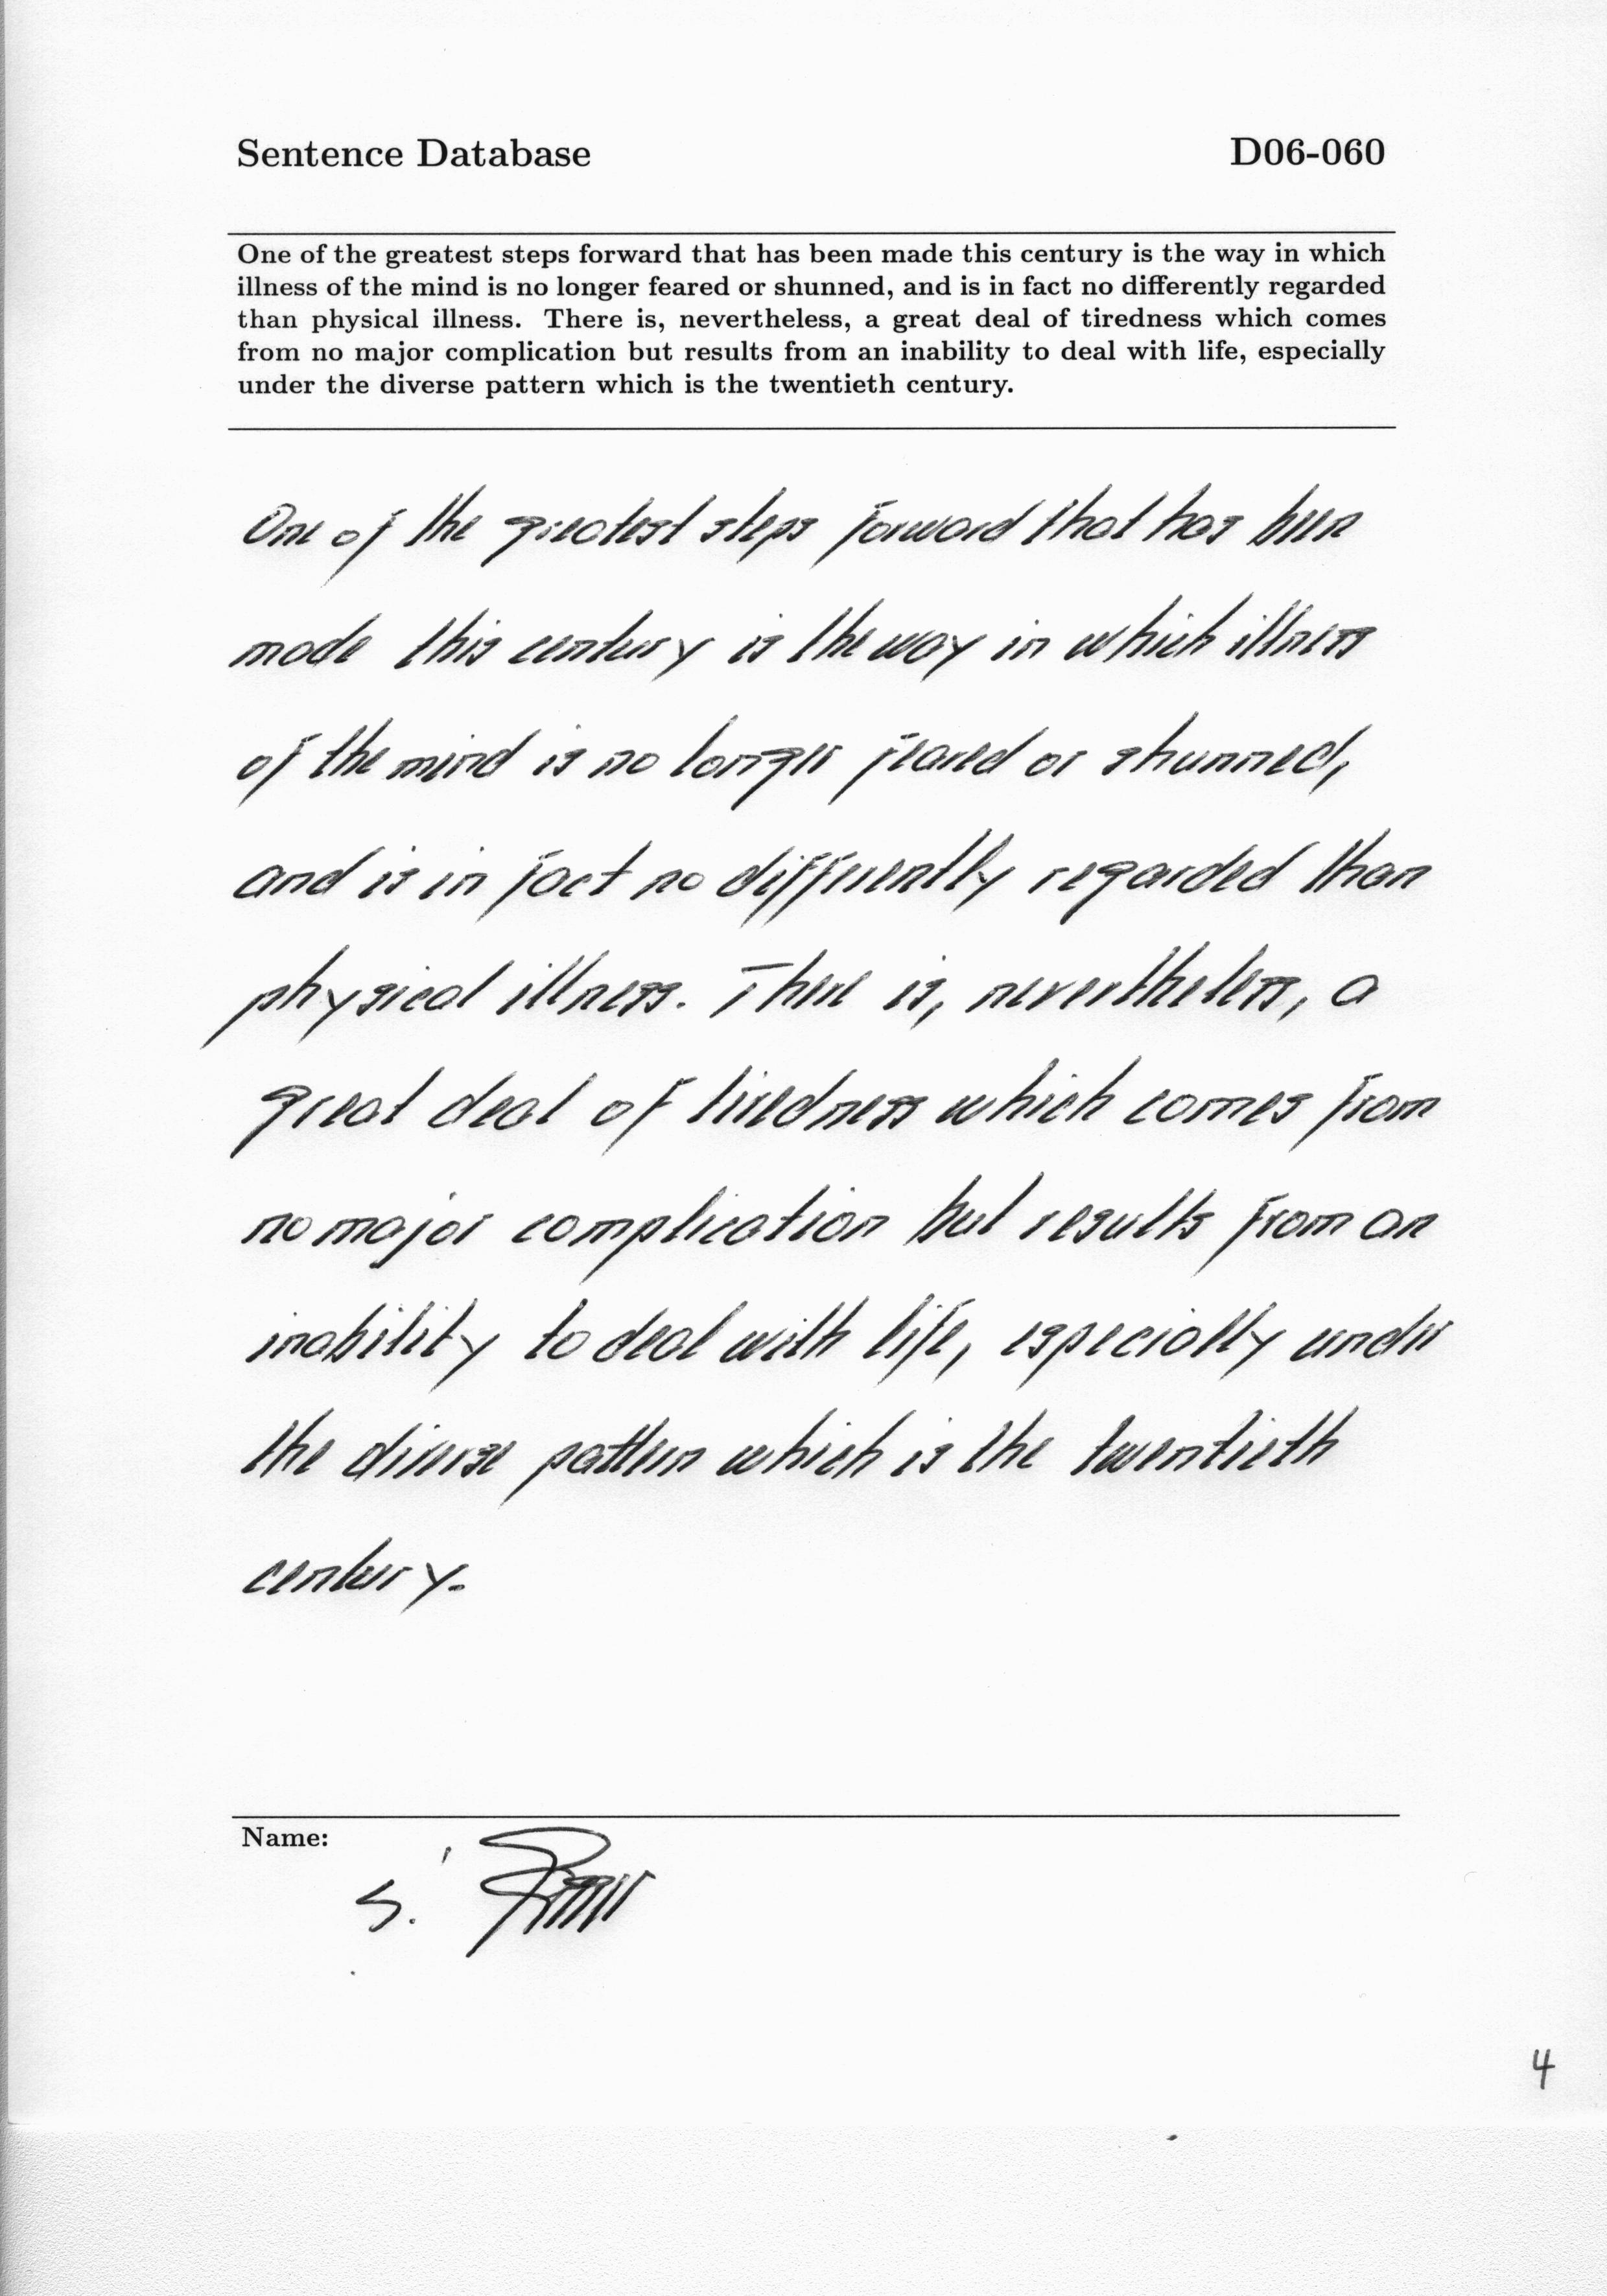 Sentence Database D06-060
One of the greatest steps forward that has been made this century is the way in which
illness of the mind is no longer feared or shunned, and is in fact no differently regarded
than physical illness. There is, nevertheless, a great deal of tiredness which comes
from no major complication but results from an inability to deal with life, especially
under the diverse pattern which is the twentieth century.
One of the greatest steps forward that has been
made this century is the way in which illness
of the mind is no longer feared or shunned,
and is in fact no differently regarded than
physical illness. There is, nevertheless, a
great deal of tiredness which comes from
no major complication but results from an
inability to deal with life, especially under
the diverse pattern which is the twentieth
century.
Name:
S.
4